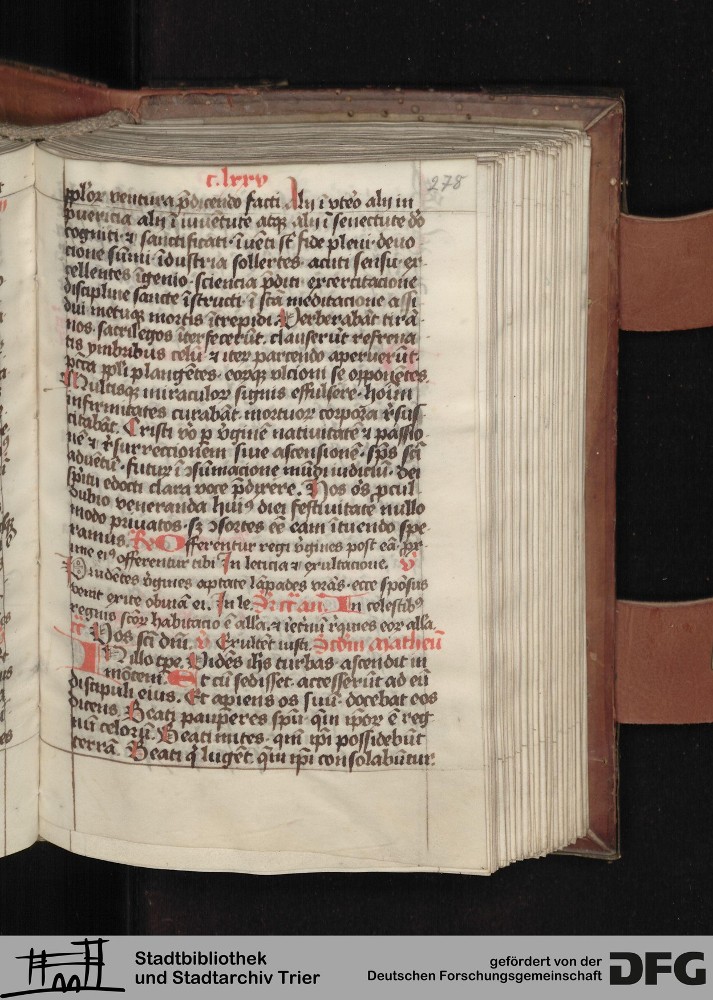 c. lxxv
278
pplor ventura p̄dicendo facti Alii ī vteo alii in
puericia alii ī iuuētute atqꝫ alii ī senectute do̅
cogniti ⁊ sanctificati ī uēti st̄ fide pleni deuo
cione sūmi īdustria sollertes acuti sensu ex
cellentes īgenio sciencia p̄diti exercitacione
discipline sancte īstructi ī scā meditacione assi
dui metuqꝫ mortis ītrepidi Verberabāt tirā
nos sacrilegos īterfecerūt clauserūt refrena
tis ymbribus celū ⁊ iter parcendo aperuerūt
pctā ppli plangētes eorūqꝫ vlcioni se opponētes
Multisqꝫ miraculor signis effulsere hoīm
infirmitates curabāt mortuor corpora rsus
citabāt Cristi vo p vgine natiuitatē ⁊ passio
nē ⁊ rsurrectionem siue ascensionē sps scī
aduētū futur ꝯsūmacione mūdi iudiciū dei
spū edocti clara voce p̄dixere Nos os pcul
dubio veneranda huiꝰ diei festiuitate nullo
modo priuatos sꝫ ꝯsortes eē eam ītuendo spe
ramus Re Offerentur regi vgines post eā px
ime eiꝰ offerentur tibi In leticia ⁊ exultacione v
Prudētes vgines aptate lāpades vrās ecce spōsus
venit exite obuiā ei In le In celestibꝰ
regnis scōr habitacio ē alla ⁊ ī etnū rquies eor alla
Vos scī dni v Exultēt iusti Scdm Matheū
In illo tpe Vidēs ihs turbas ascendit in
montem Et cū sedisset accesserūt ad eū
discipuli eius Et apiens os suū docebat eos
dicens Beati pauperes spū qm ipor ē reg
nū celorū Beati mites qm ipi possidebūt
terrā Beati q lugēt qm ipi consolabūtur
Stadtbibliothek
und Stadtarchiv Trier
gefördert von der
Deutschen Forschungsgemeinschaft
DFG